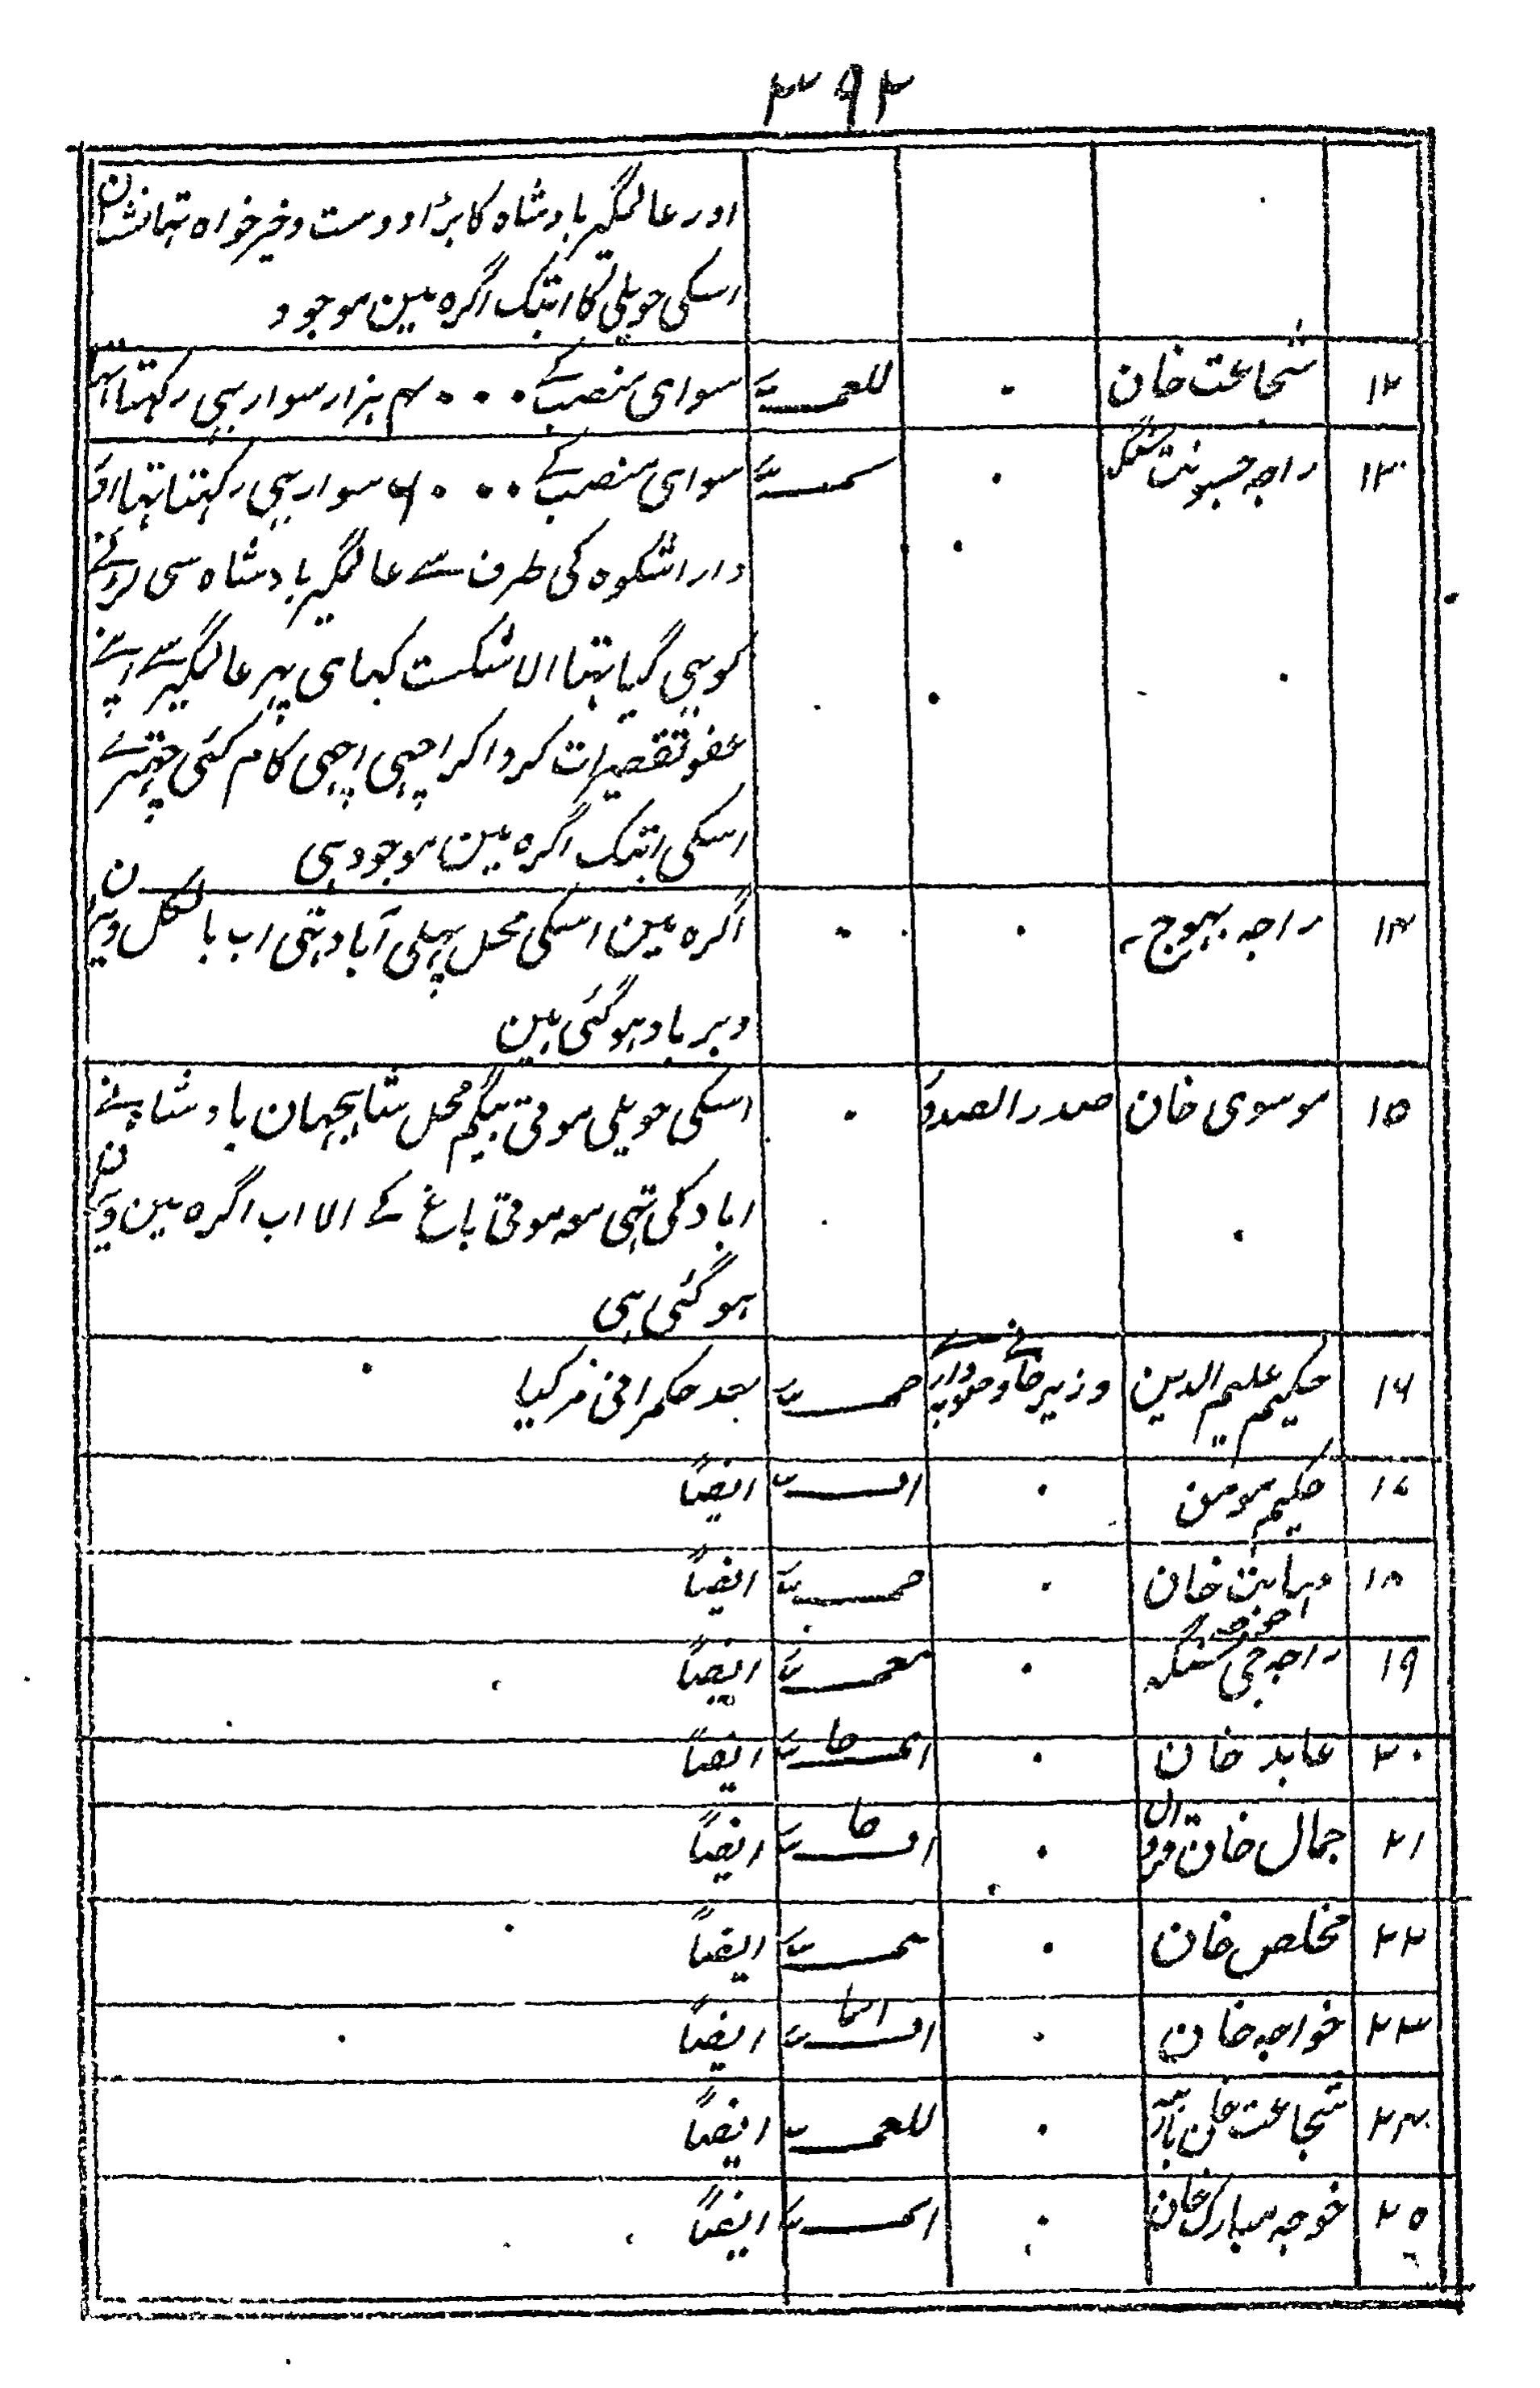 ۳۹۲
اور عالمگیر بادشاہ کا بڑا دوست و خیر خواہ تہا نشان
اسکی حویلی کا ابتک اگرہ مین موجود
۱۲ شجاعت خان ۰ سوای منصب کے ۴۰۰۰ ہزار سوار بہی رکہتا تہا
۱۳ راجہ جسونت سنگہ ۰ سوای منصب کے ۶۰۰۰ سوار بہی رکہتا تہا اور
دارا شکوہ کی طرف سے عالمگیر بادشاہ سی لڑنے
کو بہی گیا تہا الا شکست کہای پہر عالمگیر سے اپنے
عفو تقصیرات کروا کر اچہی اچہی کام کئی چہتری
اسکی ابتک اگرہ مین موجود ہی
۱۴ راجہ بہوج ۰ ۰ اگرہ مین اسکی محل پہلی آباد تہی اب بالکل ویران
و برباد ہو گئی ہین
۱۵ موسوی خان صدر الصدور ۰ اسکی حویلی موتی بیگم محل شاہجہان بادشاہ نے
اباد کی تہی معہ موتی باغ کے الا اب اگرہ مین ویران
ہو گئی ہی
۱۶ حکیم علیم الدین وزیر خانی و صوبہ دار بعد حکمرانی مر گیا
۱۷ حکیم مومن ۰ ایضاً
۱۸ مہابت خان ۰ ایضاً
۱۹ راجہ جی سنگہ ۰ ایضاً
۲۰ عابد خان ۰ ایضاً
۲۱ جمال خان ۰ ایضاً
۲۲ مخلص خان ۰ ایضاً
۲۳ خواجہ خان ۰ ایضاً
۲۴ شجاعت خان بارہہ ۰ ایضاً
۲۵ خوجہ مبارک خان ۰ ایضاً